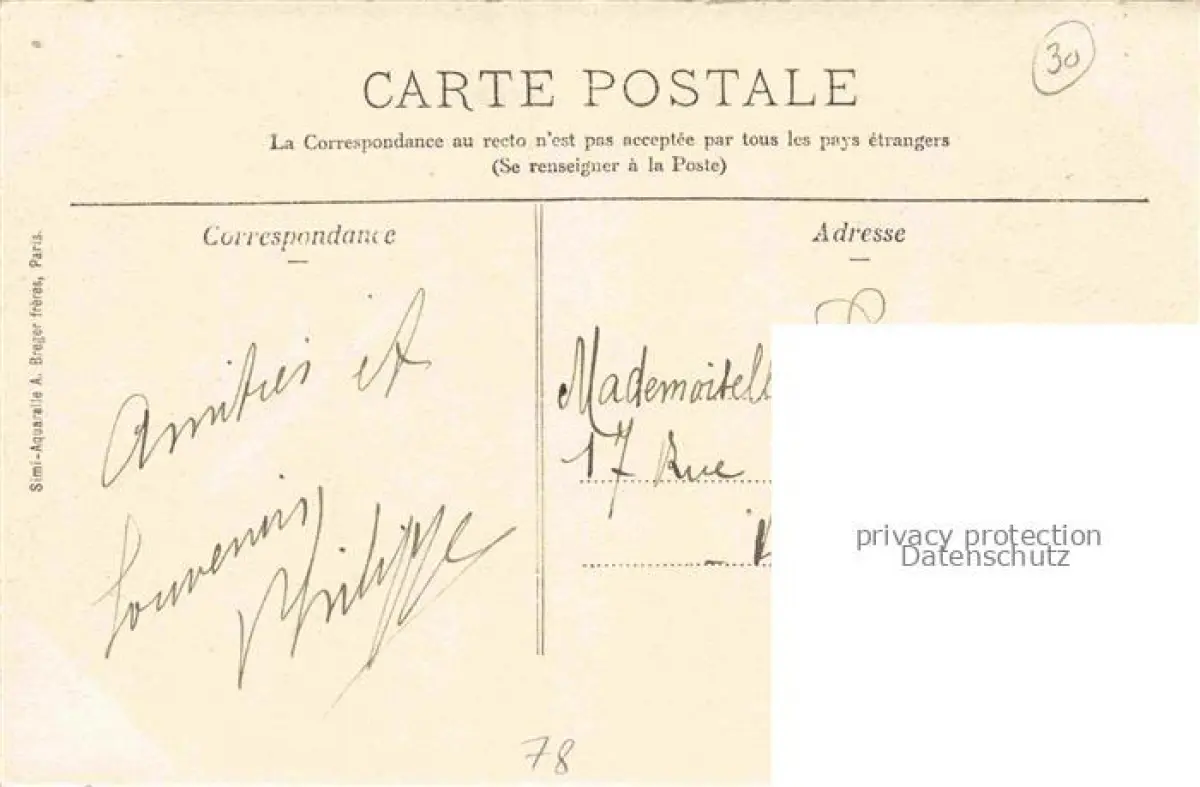 30
CARTE POSTALE
La Correspondance au recto n'est pas acceptée par tous les pays étrangers
(Se renseigner à la Poste)
Simi-Aquarelle A. Breger frères, Paris.
Correspondance
Amitiés et
Souvenirs
Philippe
Adresse
Mademoisell
17 Rue
privacy protection
Datenschutz
78